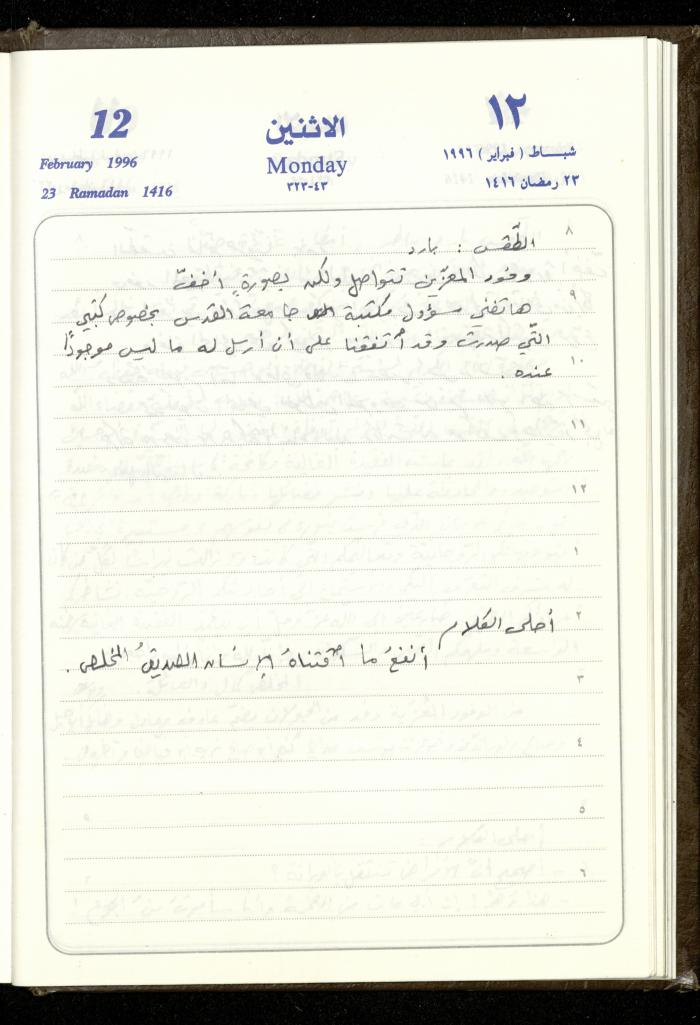 12
February 1996
23 Ramadan 1416
الاثنين
Monday
٤٣-٣٢٣
١٢
شباط ( فبراير ) ١٩٩٦
٢٣ رمضان ١٤١٦
٨
الطّقس : بارد
وفود المعزّين تتواصل ولكن بصورةٍ أخفّ
٩
هاتفني مسؤول مكتبة جامعة القدس بخصوص كتبي
التّي صدرت وقد اتفقنا على أن أرسل له ما ليس موجودًا
١٠
عنده .
١١
١٢
١
٢
أحلى الكلام
أنفعُ ما اقتناهُ الإنسان الصديقُ المخلص .
٣
٤
٥
٦